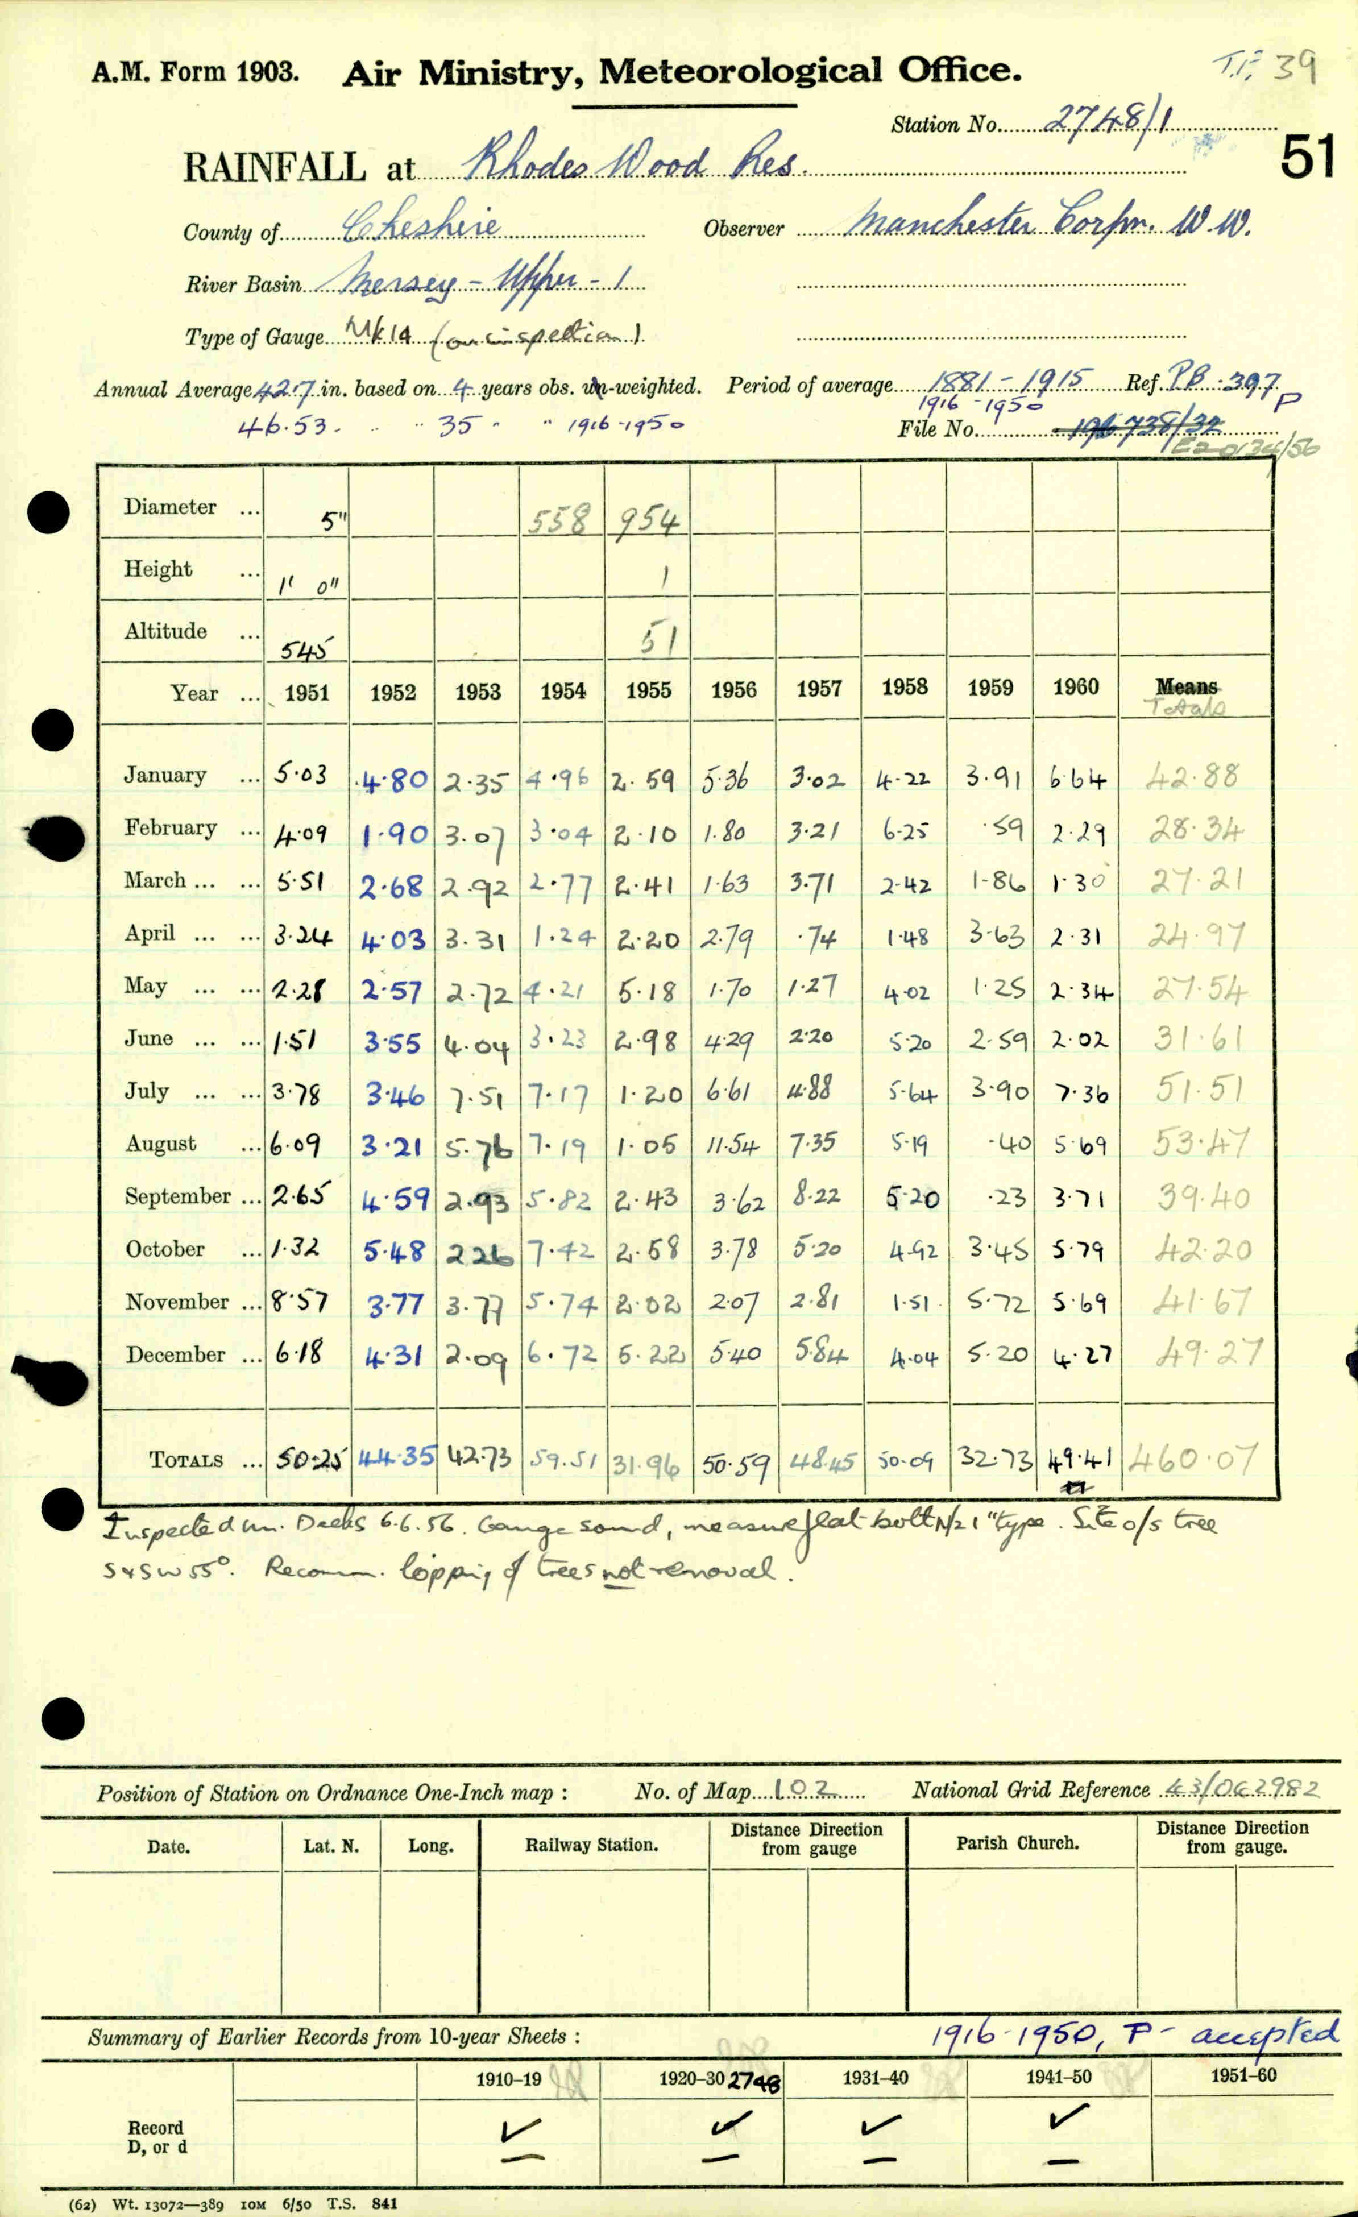 T.F. 39
A.M. Form 1903. Air Ministry, Meteorological Office.
Station No. 2748/1
51
RAINFALL at Rhodes Wood Res.
County of Cheshire Observer Manchester Corpn. W.W.
River Basin Mersey - Upper - 1
Type of Gauge Mk 1A (on inspection)
Annual Average 42.7 in. based on 4 years obs. un-weighted. Period of average 1881-1915 Ref. PB. 397 P
46.53. " " 35 " " 1916-1950 1916-1950
File No. 738/32
E20134/56
Diameter ... 5" 558 954
Height ... 1' 0" 1
Altitude ... 545 51
Year ... 1951 1952 1953 1954 1955 1956 1957 1958 1959 1960 Means Totals
January ... 5.03 4.80 2.35 4.96 2.59 5.36 3.02 4.22 3.91 6.64 42.88
February ... 4.09 1.90 3.07 3.04 2.10 1.80 3.21 6.25 .59 2.29 28.34
March ... ... 5.51 2.68 2.92 2.77 2.41 1.63 3.71 2.42 1.86 1.30 27.21
April ... ... 3.24 4.03 3.31 1.24 2.20 2.79 .74 1.48 3.63 2.31 24.97
May ... ... 2.28 2.57 2.72 4.21 5.18 1.70 1.27 4.02 1.25 2.34 27.54
June ... ... 1.51 3.55 4.04 3.23 2.98 4.29 2.20 5.20 2.59 2.02 31.61
July ... ... 3.78 3.46 7.51 7.17 1.20 6.61 4.88 5.64 3.90 7.36 51.51
August ... 6.09 3.21 5.76 7.19 1.05 11.54 7.35 5.19 .40 5.69 53.47
September ... 2.65 4.59 2.93 5.82 2.43 3.62 8.22 5.20 .23 3.71 39.40
October ... 1.32 5.48 2.26 7.42 2.58 3.78 5.20 4.92 3.45 5.79 42.20
November ... 8.57 3.77 3.77 5.74 2.02 2.07 2.81 1.51 5.72 5.69 41.67
December ... 6.18 4.31 2.09 6.72 5.22 5.40 5.84 4.04 5.20 4.27 49.27
TOTALS ... 50.25 44.35 42.73 59.51 31.96 50.59 48.45 50.09 32.73 49.41 460.07
Inspected Mr. Deeks 6.6.56. Gauge sound, measure flat bott N/21" type. Site o/s tree
S & SW 55°. Recomm. lopping of trees not removal.
Position of Station on Ordnance One-Inch map : No. of Map 102 National Grid Reference 43/062982
Date. Lat. N. Long. Railway Station. Distance Direction from gauge Parish Church. Distance Direction from gauge.
Summary of Earlier Records from 10-year Sheets : 1916-1950, P - accepted
1910-19 1920-30 2748 1931-40 1941-50 1951-60
Record ✓ ✓ ✓ ✓
D, or d — — — —
(62) Wt. 13072—389 10M 6/50 T.S. 841